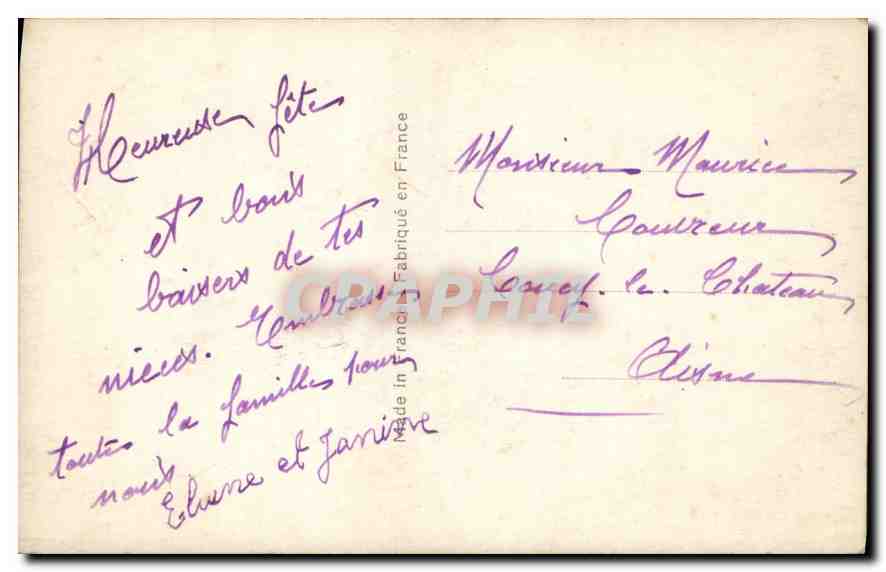 Heureuse fête
et bons
baisers de tes
nieces. Embrasse
toute la famille pour
nous
et Janine
Made in France Fabriqué en France
Monsieur Maurice
Couvreur
Coucy-le-Chateau
Aisne
CPAPHIL